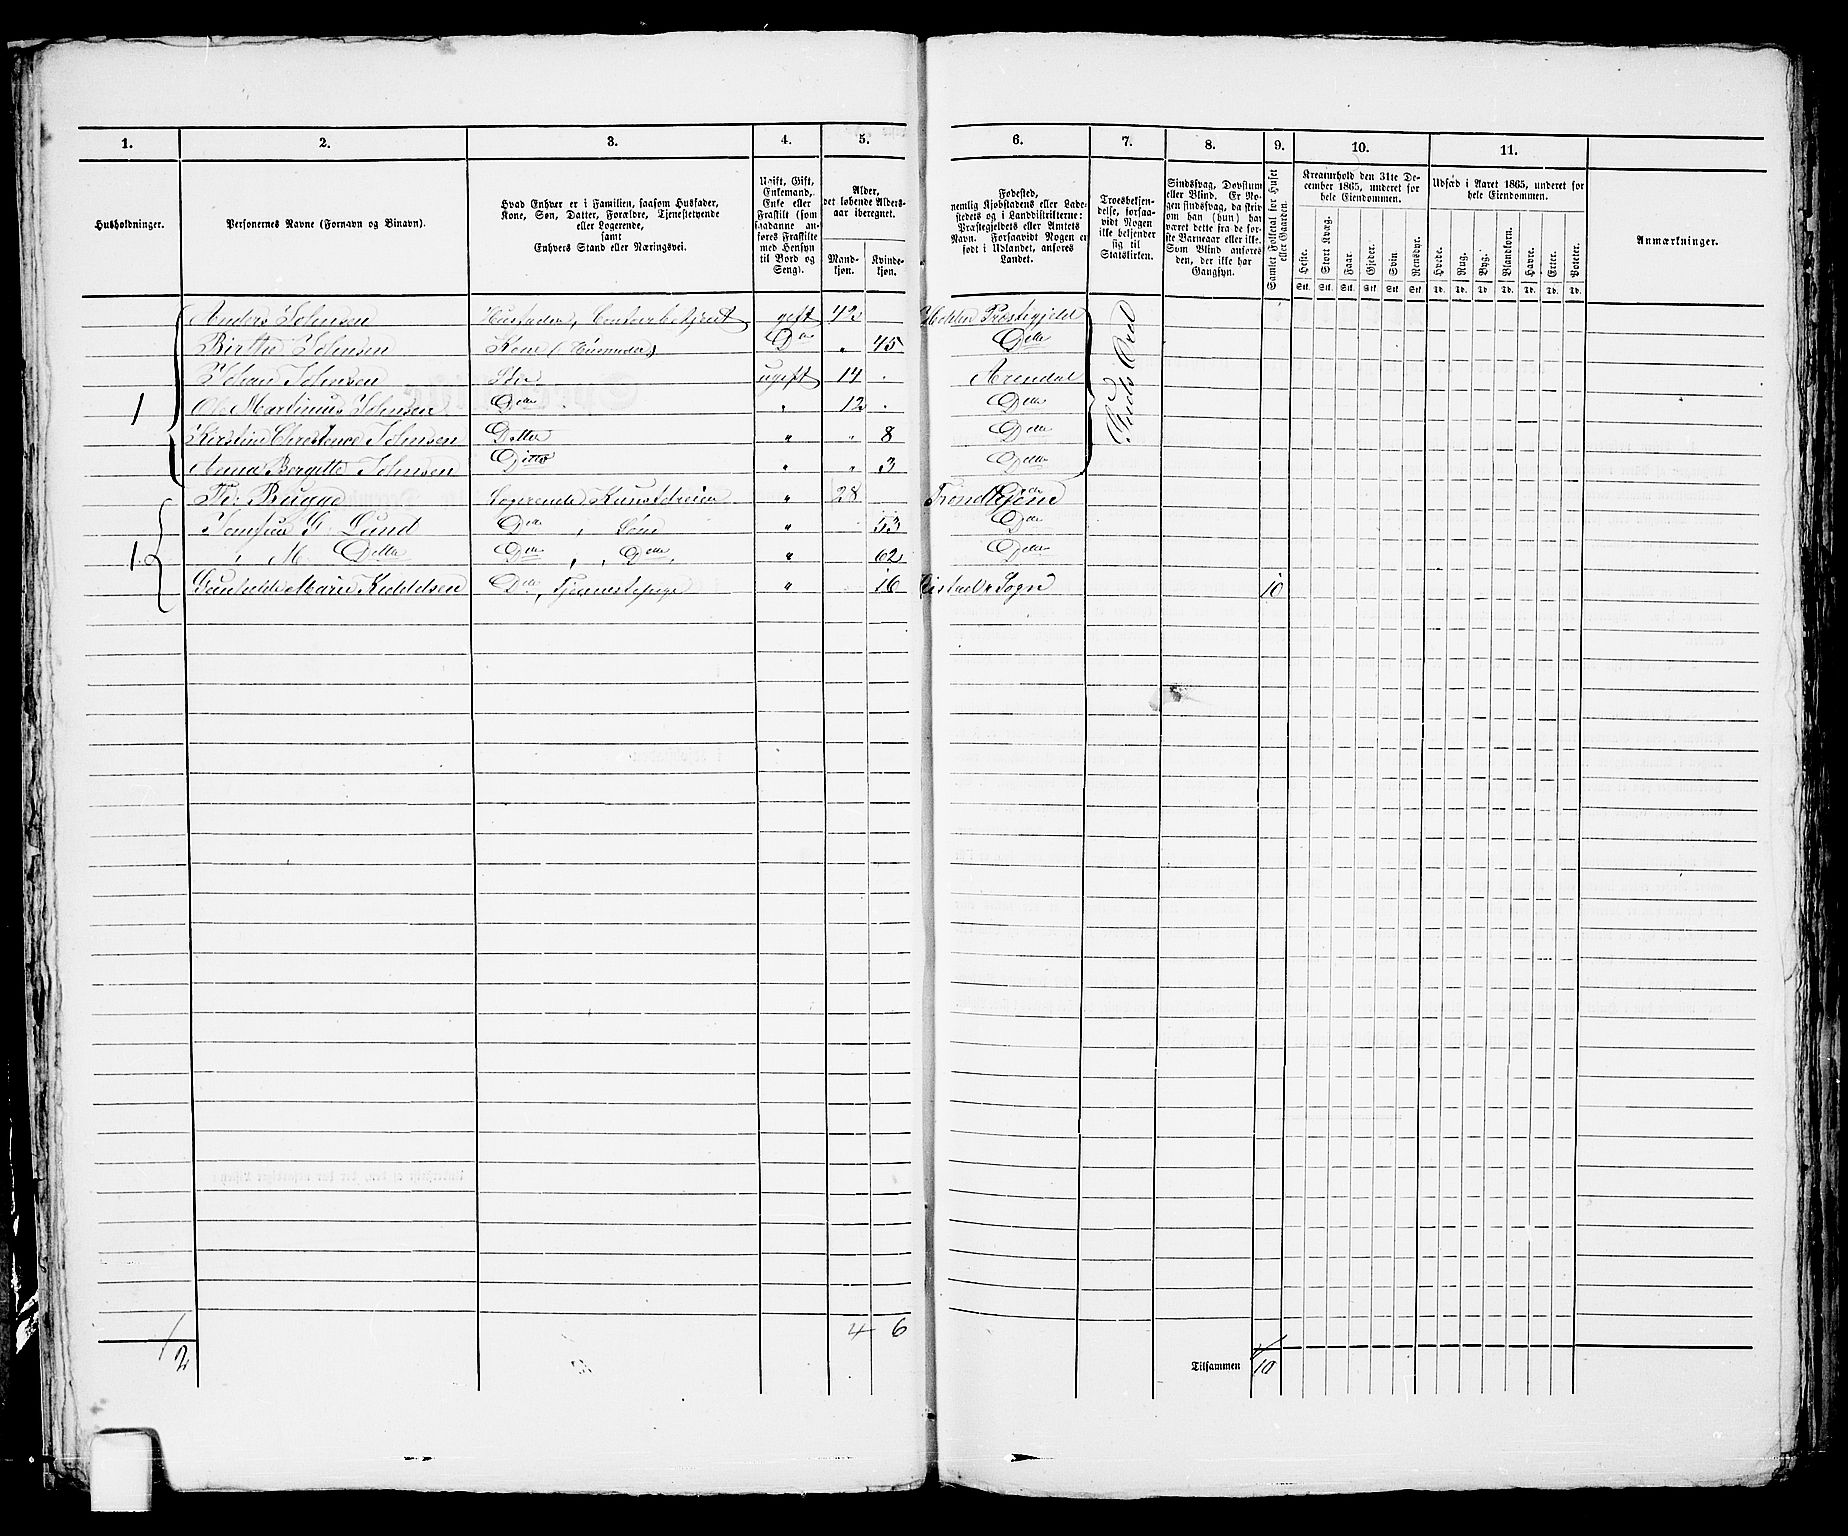 1. 2. 3. 4. 5. 6. 7. 8. 9. 10. 11.
Husholdninger.
Personernes Navne (Fornavn og Binavn).
Hvad Enhver er i Familien, saasom Husfader,
Kone, Søn, Datter, Forældre, Tjenestetyende
eller Logerende,
samt
Enhvers Stand eller Næringsvei.
Ugift, Gift,
Enkemand,
Enke eller
Fraskilt (som
saadanne an-
føres Fraskilte
med Hensyn
til Bord og
Seng).
Alder,
det løbende Alders-
aar iberegnet.
Mand-
kjøn.
Kvinde-
kjøn.
Fødested,
nemlig Kjøbstadens eller Lade-
stedets og i Landdistrikterne:
Præstegjeldets eller Amtets
Navn. Forsaavidt Nogen er
født i Udlandet, anføres
Landet.
Troesbekjen-
delse, forsaa-
vidt Nogen
ikke bekjender
sig til
Statskirken.
Sindssvag, Døvstum
eller Blind. Er No-
gen sindssvag, da skriv
om han (hun) har
været dette fra de før-
ste Barneaar eller ikke.
Som Blind anføres
den, der ikke har
Gangsyn.
Samlet Folketal for Huset
eller Gaarden.
Kreaturhold den 31te De-
cember 1865, underet for
hele Eiendommen.
Heste. Stort Kvæg. Faar. Gjeder. Svin. Rensdyr.
Stk. Stk. Stk. Stk. Stk. Stk.
Udsæd i Aaret 1865, underet for
hele Eiendommen.
Hvede. Rug. Byg. Blandkorn. Havre. Erter. Poteter.
Td. Td. Td. Td. Td. Td. Td.
Anmærkninger.
Anders Johnsen Husfader, gift 42 Præstegjeld
Birthe Johnsen Kone D 〃 45 Ditto
Johan Johnsen ugift 14 Arendal
1 Ole Martinus Johnsen Ditto 〃 12 Ditto
Kirstine Johnsen Datter 〃 〃 8 Ditto
Anna Bergitte Johnsen Ditto 〃 〃 3 Ditto
Fr. Brugge Logerende 〃 28 Trondhjem
Jomfrue G. Lund Ditto 〃 53 Ditto
1. 〃 M Ditto Ditto, Ditto 〃 62 Ditto
Marie 〃 16 Sogn 10
4 6
2
Tilsammen 10